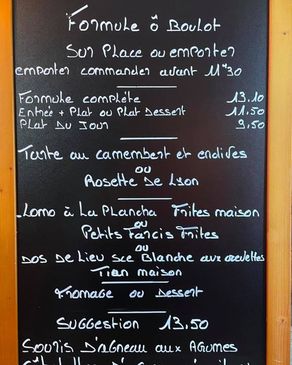 Formule ô Boulot
Sur Place ou emporter
emporter commander avant 11H30
Formule complète 13.10
Entrée + Plat ou Plat Dessert 11,50
Plat Du Jour 9,50
Tarte au camembert et endives
ou
Rosette De Lyon
Lomo à La Plancha Frites maison
ou
Petits Farcis Frites
ou
Dos De Lieu Sce Blanche aux crevettes
Tian maison
Fromage ou Dessert
Suggestion 13,50
Souris D'agneau aux Agumes